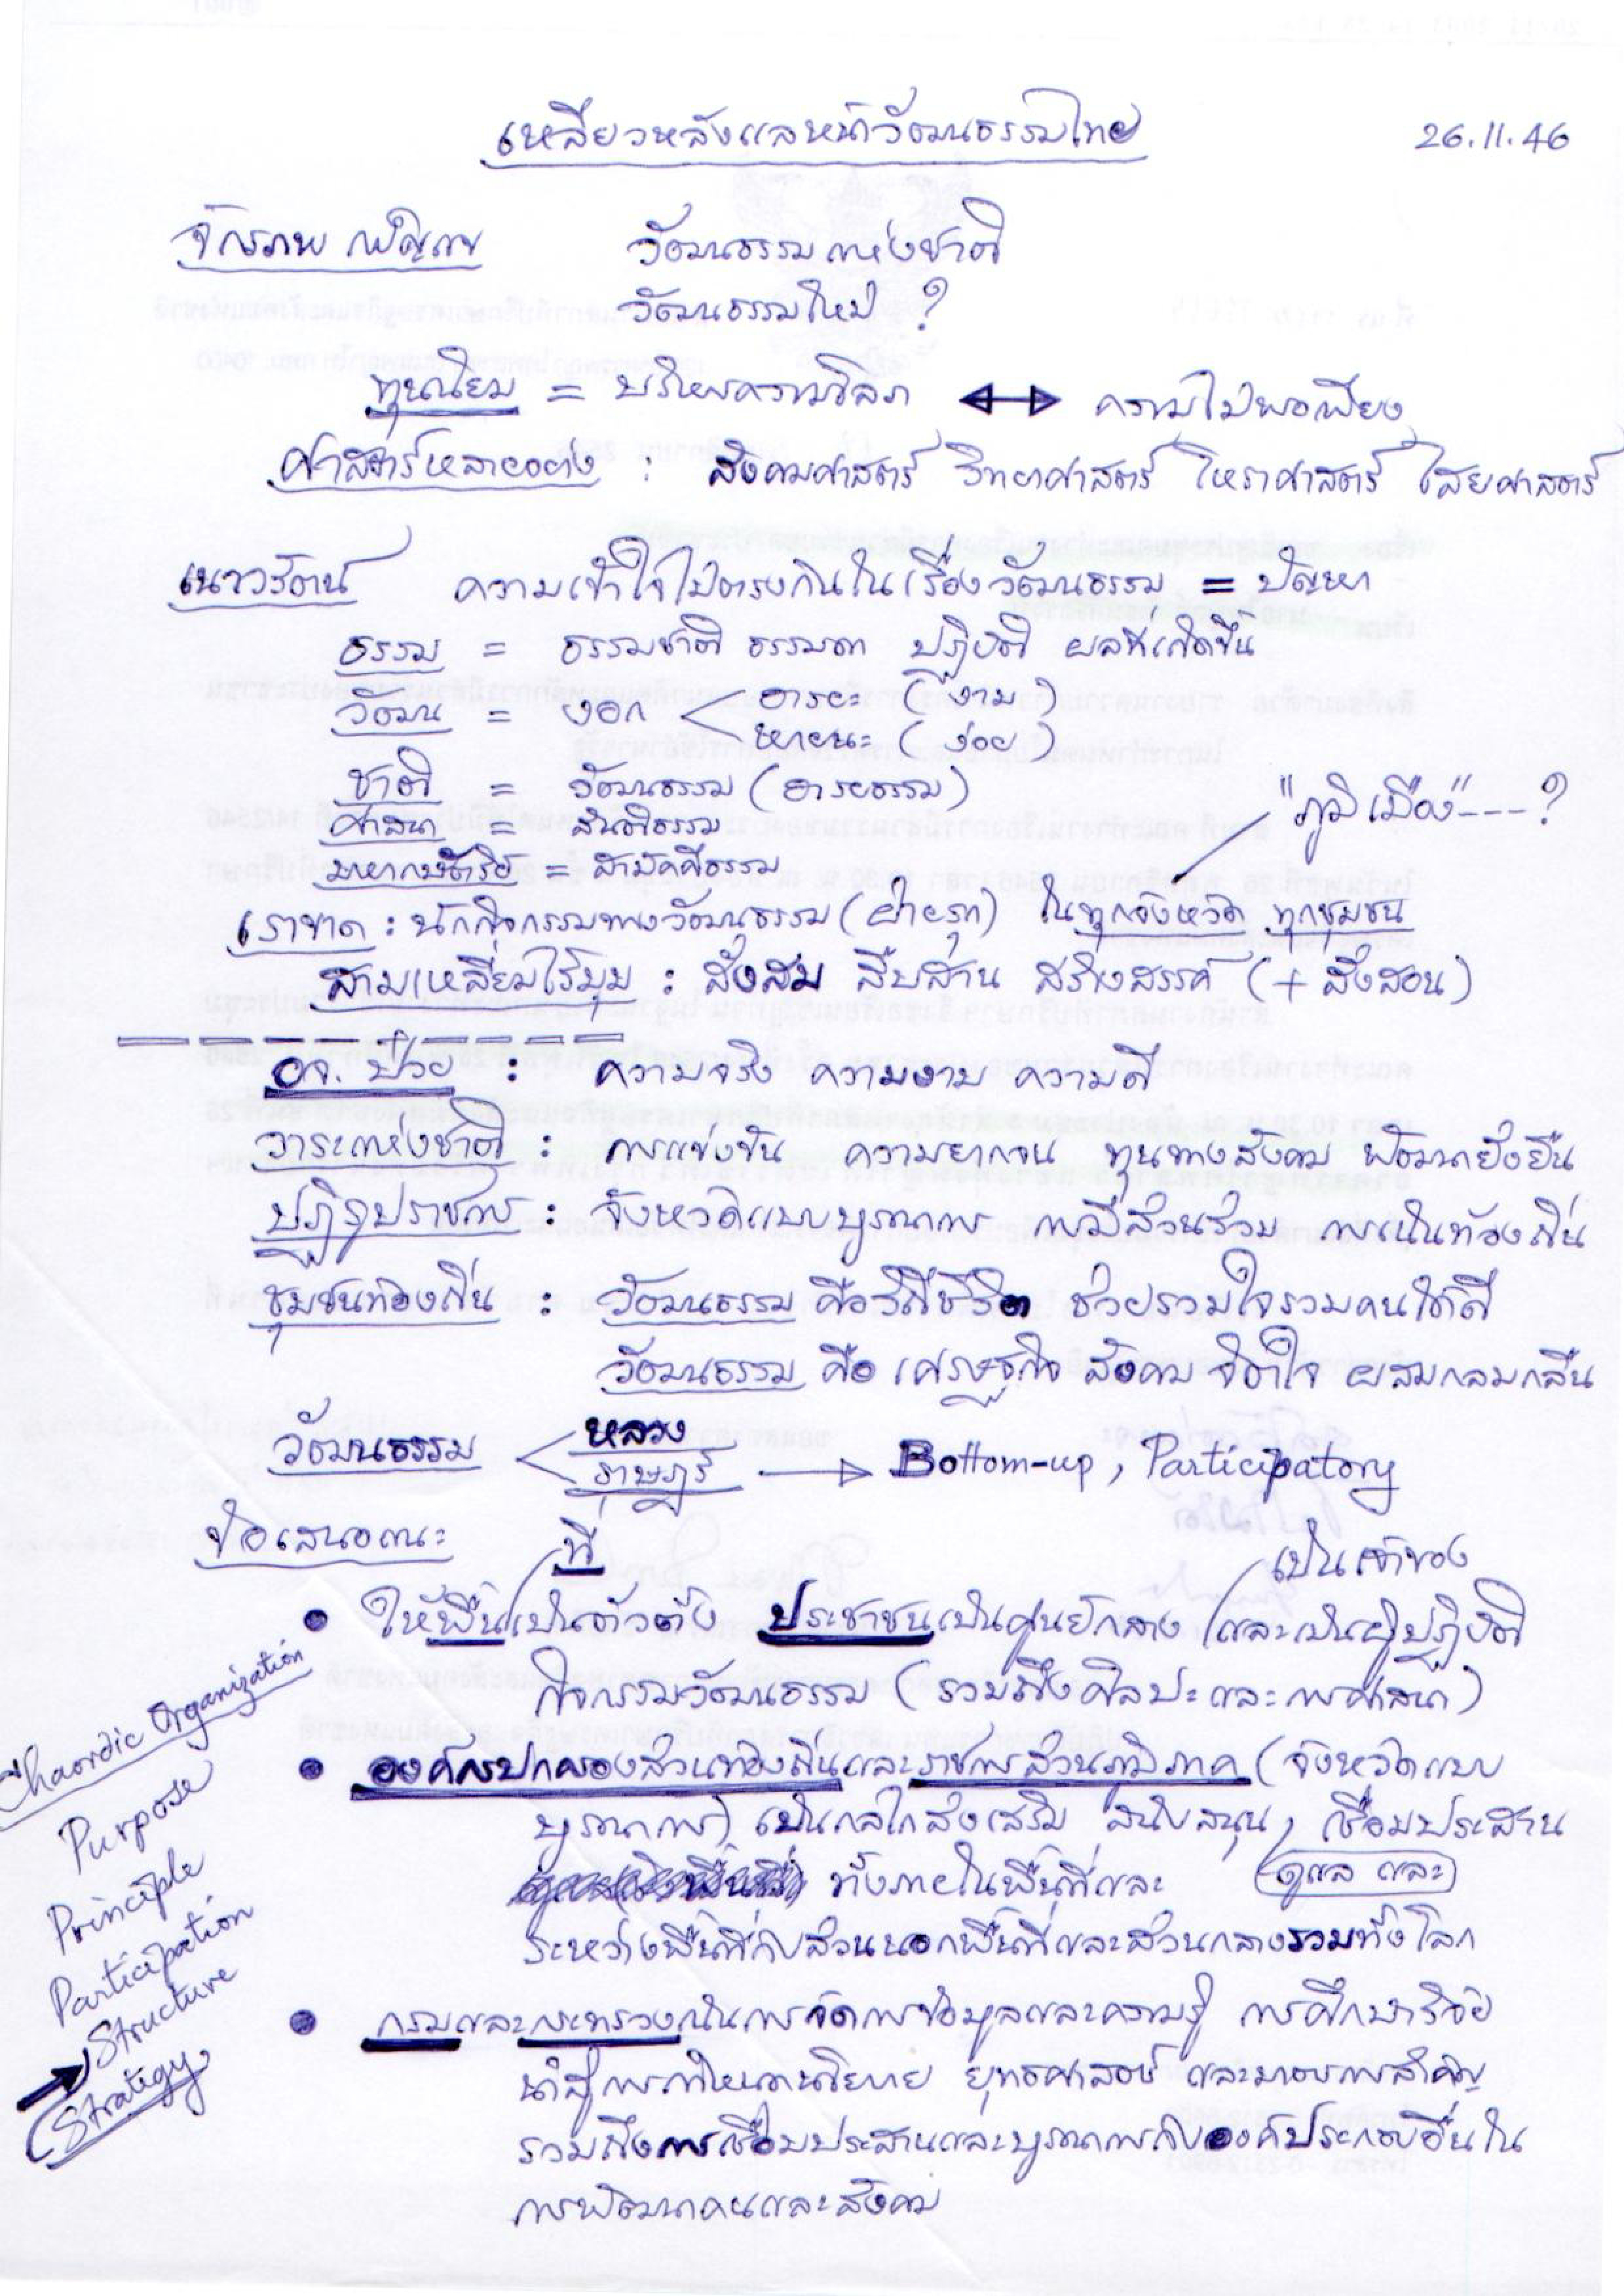 เหลียวหลังแลหน้าวัฒนธรรมไทย 26.11.46
จักรภพ เพ็ญแข วัฒนธรรมแห่งชาติ
วัฒนธรรมใหม่ ?
ทุนนิยม = บริหารความโลภ ↔ ความไม่พอเพียง
ศาสตร์หลายอย่าง : สังคมศาสตร์ วิทยาศาสตร์ โหราศาสตร์ ไสยศาสตร์
เนาวรัตน์ ความเข้าใจไม่ตรงกันในเรื่องวัฒนธรรม = ปัญหา
ธรรม = ธรรมชาติ ธรรมดา ปฏิบัติ ผลที่เกิดขึ้น
วัฒน = งอก < อารยะ (งาม)
หายนะ (ง่อย)
ชาติ = วัฒนธรรม (อารยธรรม)
"ภูมิเมือง"---?
ศาสนา = สันติธรรม
มหากษัตริย์ = สามัคคีธรรม
เราขาด : นักกิจกรรมทางวัฒนธรรม (ฝ่ายรุก) ในทุกจังหวัด ทุกชุมชน
สามเหลี่ยมไร้มุม : สั่งสม สืบสาน สร้างสรรค์ (+ สั่งสอน)
อจ. ป๋วย : ความจริง ความงาม ความดี
วาระแห่งชาติ : การแข่งขัน ความยากจน ทุนทางสังคม พัฒนายั่งยืน
ปฏิรูปราชการ : จังหวัดแบบบูรณาการ การมีส่วนร่วม การเน้นท้องถิ่น
ชุมชนท้องถิ่น : วัฒนธรรม คือวิถีชีวิต ช่วยรวมใจรวมคนได้ดี
วัฒนธรรม คือ เศรษฐกิจ สังคม จิตใจ ผสมกลมกลืน
วัฒนธรรม < หลวง
ราษฎร์ → Bottom-up, Participatory
ข้อเสนอแนะ
ที่ เป็นเจ้าของ
• ให้พื้นเป็นตัวตั้ง ประชาชนเป็นศูนย์กลาง และเป็นผู้ปฏิบัติ
กิจกรรมวัฒนธรรม (รวมถึงศิลปะและการศาสนา)
• องค์กรปกครองส่วนท้องถิ่นและราชการส่วนภูมิภาค (จังหวัดแบบ
บูรณาการ) เป็นกลไกส่งเสริม สนับสนุน, เชื่อมประสาน
ทั้งภายในพื้นที่และ ดูแล และ
ระหว่างพื้นที่กับส่วนนอกพื้นที่และส่วนกลางรวมทั้งโลก
• กรมและกระทรวงเน้นการจัดการข้อมูลและความรู้ การศึกษาวิจัย
นำสู่การกำหนดนโยบาย ยุทธศาสตร์ และมาตรการสำคัญ
รวมถึงการเชื่อมประสานและบูรณาการกับองค์ประกอบอื่นใน
การพัฒนาคนและสังคม
Chaordic Organization
Purpose
Principle
Participation
Structure
Strategy